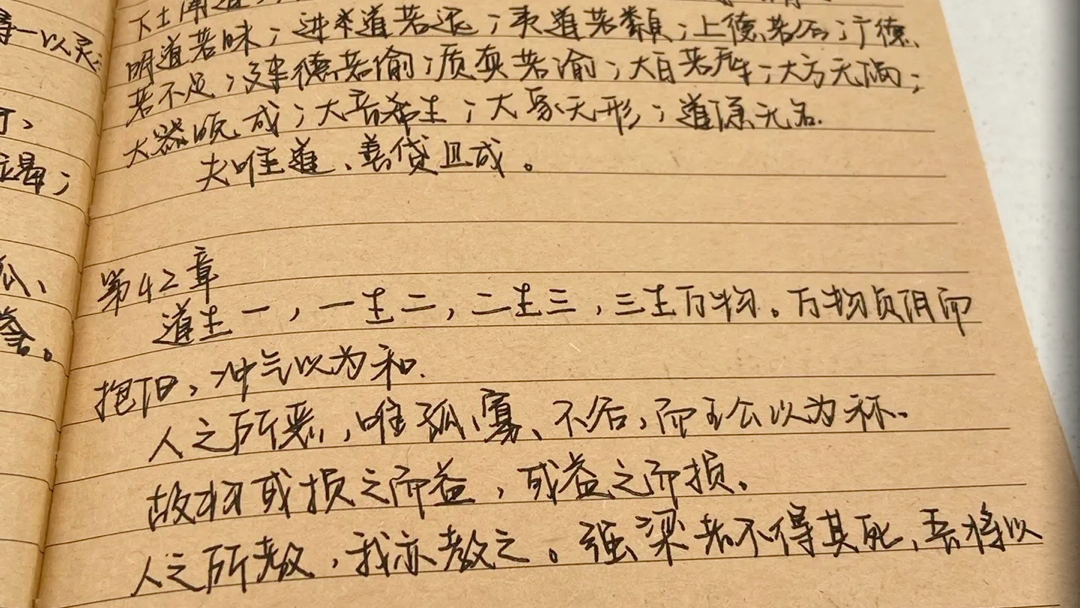 得一以灵
下士闻道
明道若昧；进道若退；夷道若类；上德若谷；广德
若不足；建德若偷；质真若渝；大白若辱；大方无隅；
大器晚成；大音希声；大象无形；道隐无名.
夫唯道、善贷且成。
第42章
道生一，一生二，二生三，三生万物。万物负阴而
抱阳、冲气以为和.
人之所恶，唯孤、寡、不谷，而王公以为称。
故物或损之而益，或益之而损。
人之所教，我亦教之。强梁者不得其死、吾将以